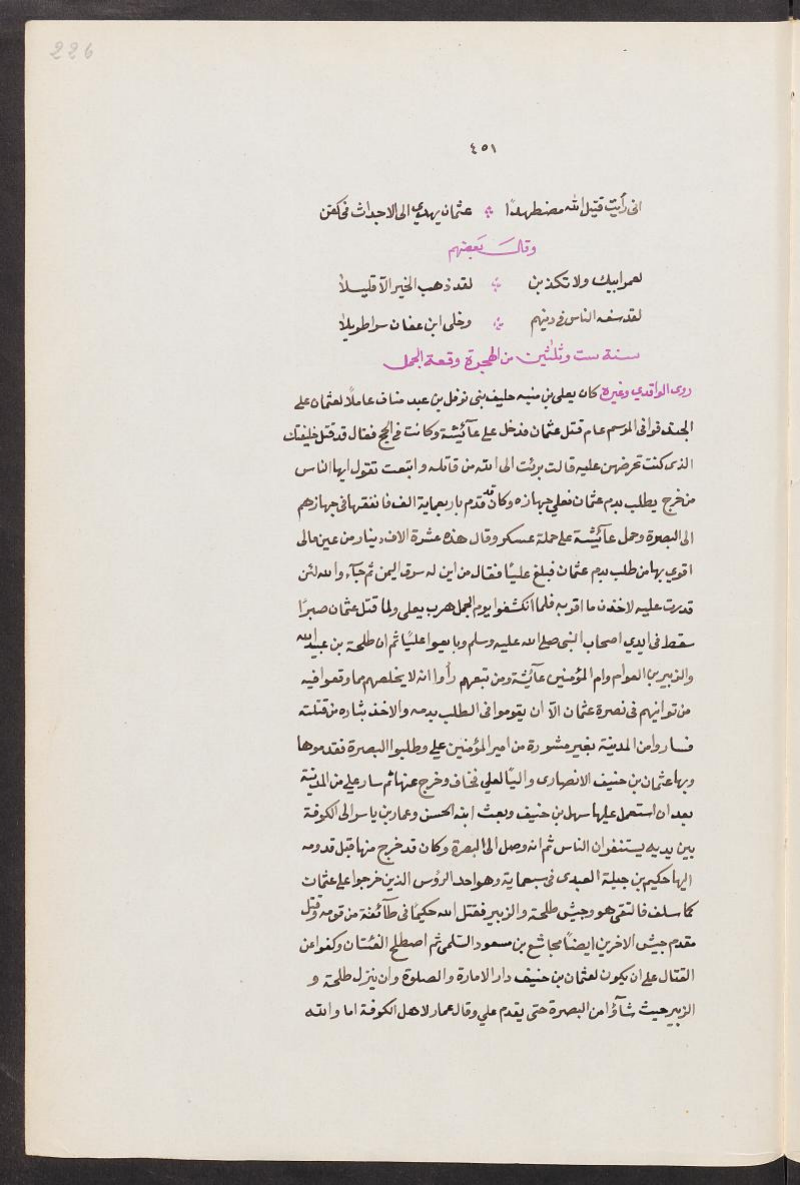 226
٤٥١
انى رأيت قتيل الله مضطهدًا ؞ عثمان يهدي الى الاجداث فى كفن
وقال بعضهم
لعمر ابيك ولا تكذبن ؞ لقد ذهب الخير الا قليلا
لقد سفه الناس فى دينهم ؞ وخلى ابن عفان سراطويلا
سنة ست وثلثين من الهجرة وقعة الجمل
روى الواقدي وغيره كان يعلى بن منيه حليف بنى نوفل بن عبد مناف عاملًا لعثمان على
الجند فوافى الموسم عام قتل عثمان فدخل على عآئيشة وكانت فى الحج فقال قد قتل خليفتك
الذى كنت تحرضهن عليه قالت برئت الى الله من قاتله وابتعت تقول ايها الناس
من خرج يطلب بدم عثمان فعلي جهازه وكان قد قدم باربعماية الف فانفقها فى جهازهم
الى البصرة وحمل عآئيشة على حملة عسكر وقال هذه عشرة الاف دينار من عين مالى
اقوي بها من طلب بدم عثمان فبلغ عليًا فقال من اين له سرق اليمن ثم جآء والله لئن
قدرت عليه لاخذن ما اقوبه فلما انكشفوا يوم الجمل هرب يعلى ولما قتل عثمان صبرًا
سقط فى ايدي اصحاب النبى صلى الله عليه وسلم وبايعوا عليًا ثم ان طلحة بن عبيد الله
والزبير بن العوام وام المؤمنين عآئيشة ومن تبعهم رأوا انه لا يخلصهم مما وقعوا فيه
من توانيهم فى نصرة عثمان الآ ان يقوموا فى الطلب بدمه والاخذ بثاره من قتلته
فساروا من المدينة بغير مشورة من امير المؤمنين علي وطلبوا البصرة فقدموها
وبها عثمان بن حنيف الانصارى واليًا لعلي فخاف وخرج عنها ثم سار على من المدينة
بعد ان استعمل عليها سهل بن حنيف وبعث ابنه الحسن وعمار بن ياسر الى الكوفة
بين يديه يستنفران الناس ثم انه وصل الى البصرة وكان قد خرج منها قبل قدومه
اليها حكيم بن جبلة العبدى فى سبعماية وهو احد الرؤس الذين خرجوا على عثمان
كما سلف فالتقى هو وجيش طلحة والزبير فقتل الله حكيمًا فى طآئفة من قومه وقتل
مقدم جيش الاخرين ايضًا مجاشع بن مسعود السلمى ثم اصطلح الفئتان وكفوا عن
القتال على ان يكون لعثمان بن حنيف دار الامارة والصلوة وان ينزل طلحة و
الزبير حيث شآؤا من البصرة حتى يقدم علي وقال عمار لاهل الكوفة اما والله